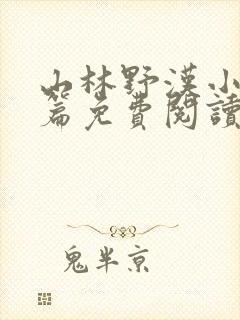 山林野漢小
篇免費閱讀
鬼半京